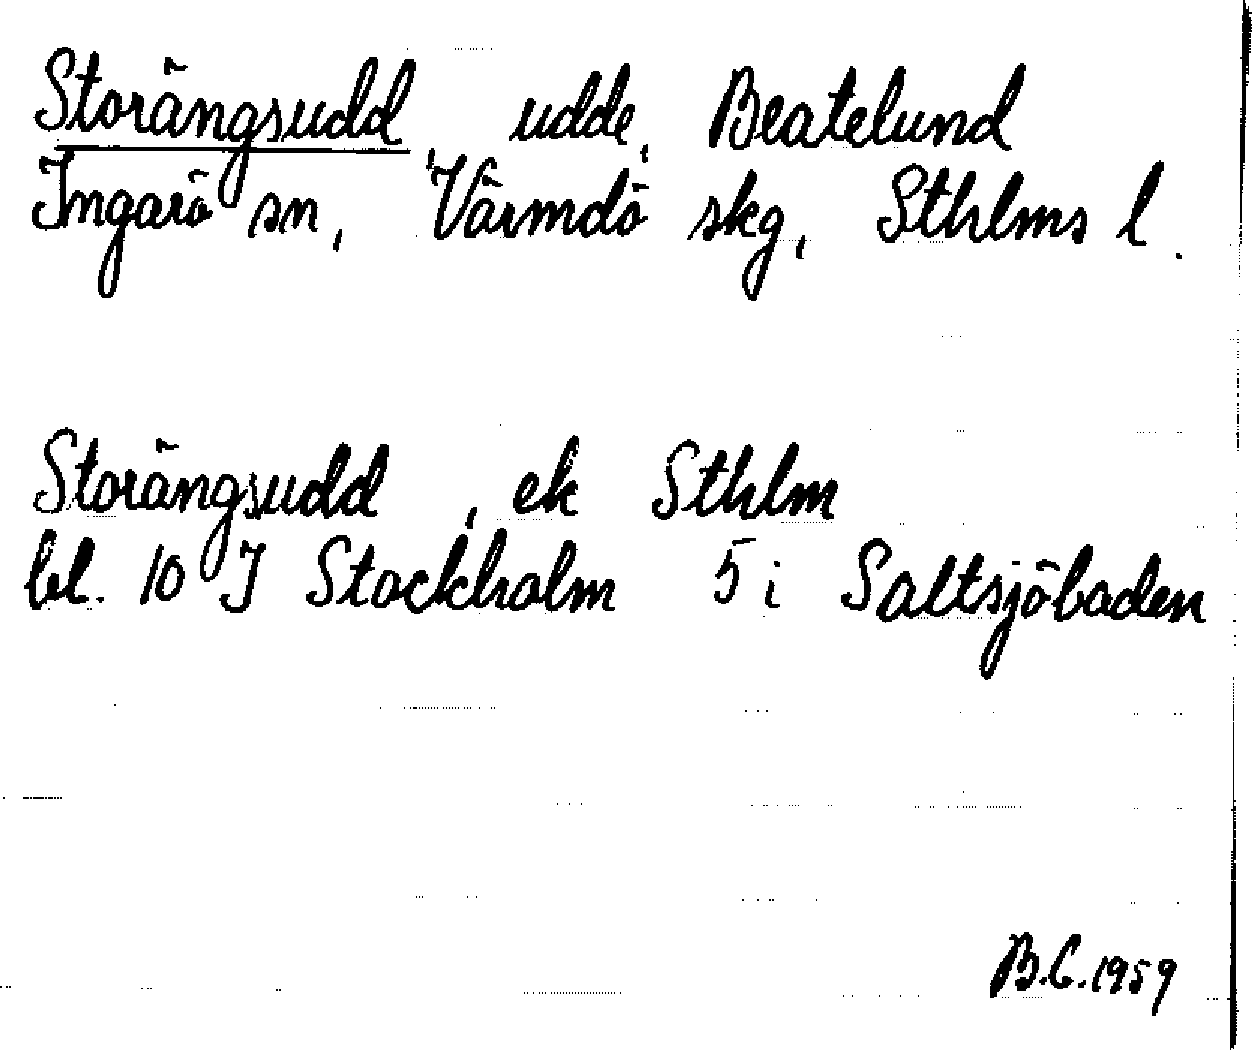 Storängsudd, udde, Beatelund
Ingarö sn, Värmdö skg, Sthlms l.
Storängsudd, ek Sthlm
bl. 10 J Stockholm 5 i Saltsjöbaden
B.C. 1959